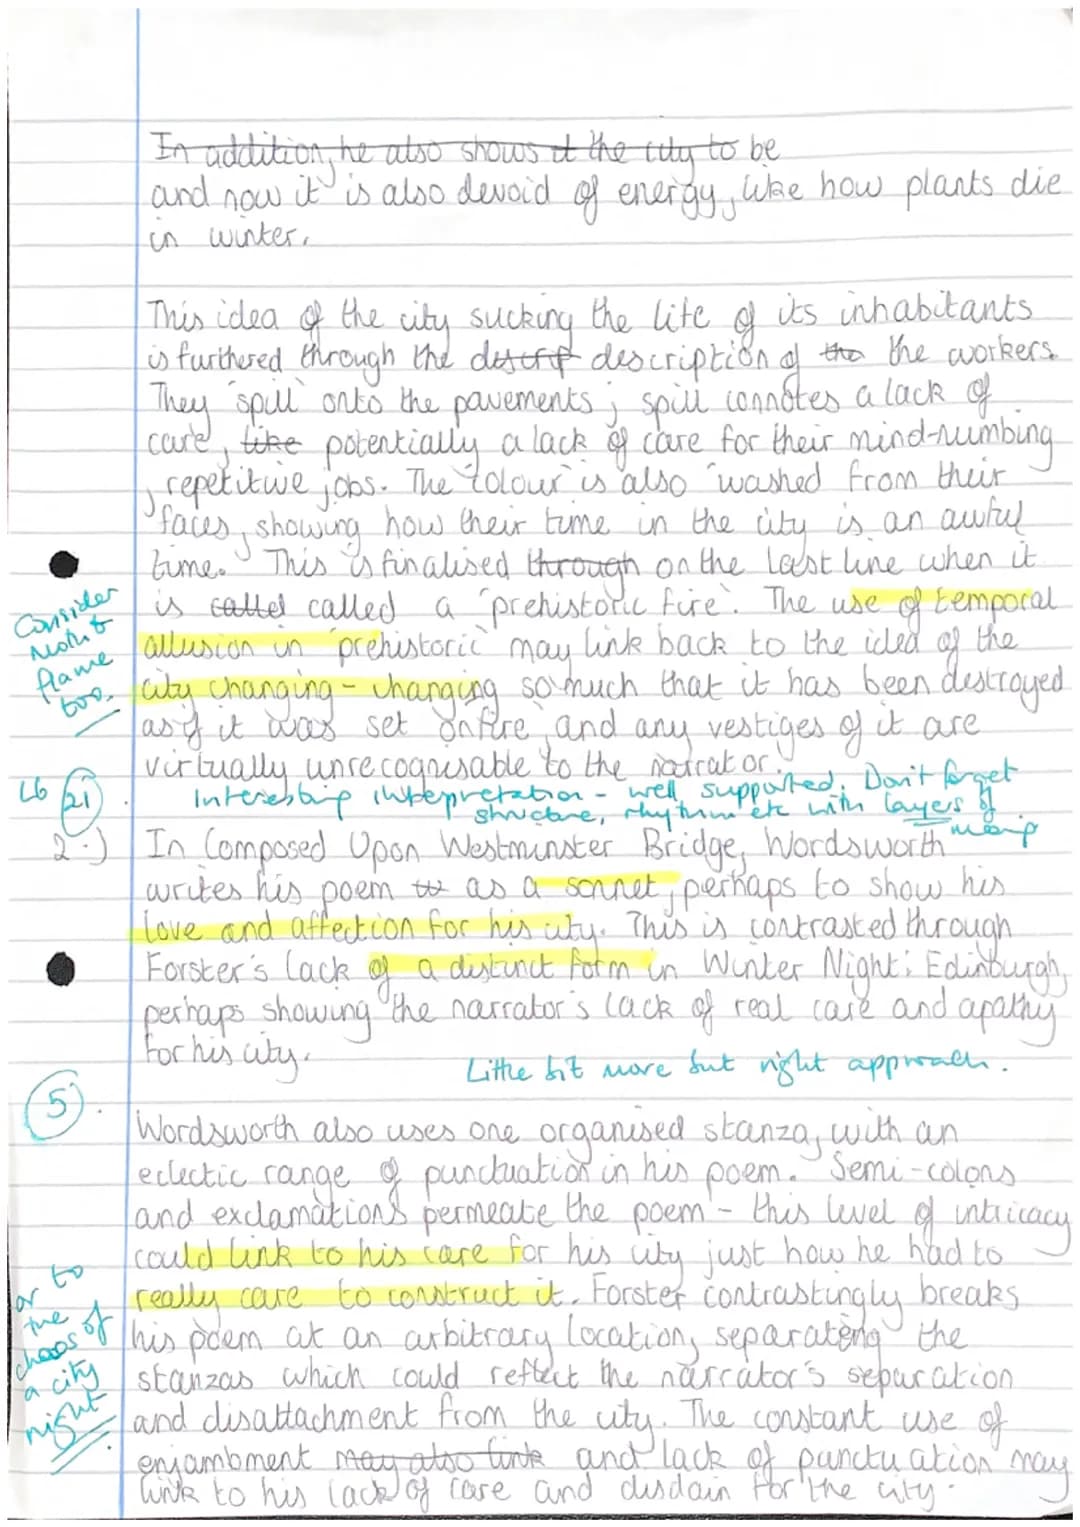 In addition, he also shows it the city to be
and now it is also devoid of energy, like how plants die
in winter.
This idea of the city sucking the life of its inhabitants
is furthered through the descrip description of the the workers.
They "spill" onto the pavements; spill connotes a lack of
care, like potentially a lack of care for their mind-numbing
, repetitive jobs. The "colour" is also "washed" from their
faces, showing how their time in the city is an awful
time. This is finalised through on the last line when it
is called called a "prehistoric fire". The use of temporal
allusion in "prehistoric" may link back to the idea of the
city changing - changing so much that it has been destroyed
as if it was set on fire, and any vestiges of it are
virtually unrecognisable to the narrator.
Consider
flame
too.
L6 21
Interesting interpretation - well supported. Don't forget
structure, rhythm etc with layers of
2.) In Composed Upon Westminster Bridge, Wordsworth
writes his poem as a sonnet, perhaps to show his
love and affection for his city. This is contrasted through
Forster's lack of a distinct form in Winter Night: Edinburgh,
perhaps showing the narrator's lack of real care and apathy
for his city.
Little bit more but right approach.
5
Wordsworth also uses one organised stanza, with an
eclectic range of punctuation in his poem. Semi-colons
and exclamations permeate the poem - this level of intricacy
could link to his care for his city just how he had to
really care to construct it. Forster contrastingly breaks
his poem at an arbitrary location, separating the
stanzas which could reflect the narrator's separation
and disattachment from the city. The constant use of
enjambment may also link and lack of punctuation may
link to his lack of care and disdain for the city.
or to
the
chaos of
a city
night